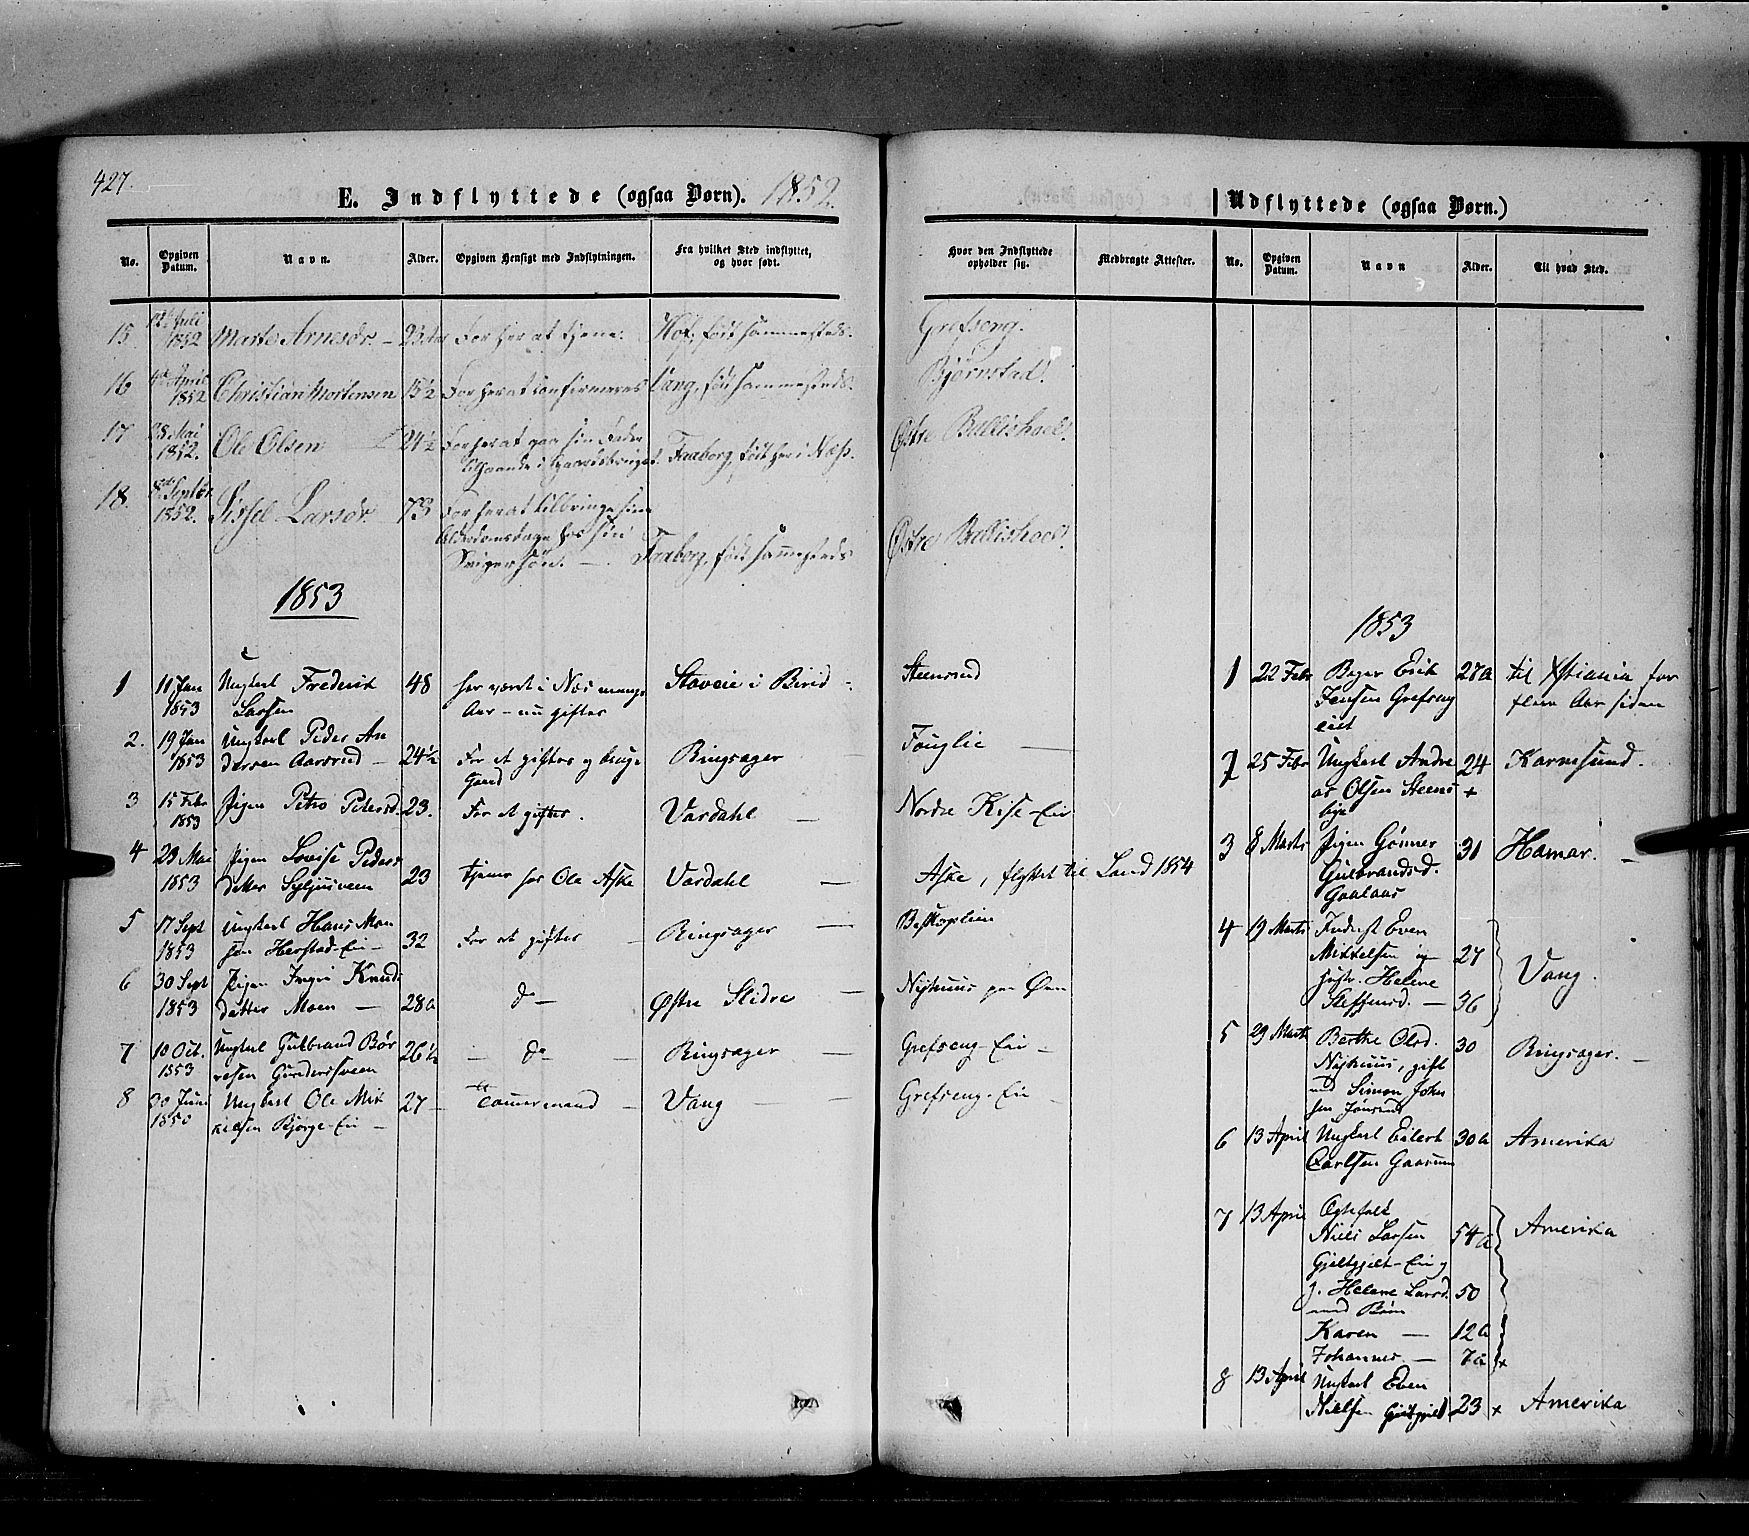 427.
E. Indflyttede (ogsaa Børn). 1852.
No. Opgiven Datum. Navn. Alder. Opgiven Hensigt med Indflytningen. Fra hvilket Sted indflyttet, og hvor født. Hvor den Indflyttede opholder sig. Medbragte Attester.
15 12te Juli 1852 Marte Arnesdr. – 23 Aar For her at tjene. Hof, født sammesteds. Grefseng.
16 April 1852 Christian Mortensen 15½ For her at confirmeres Vang, født sammesteds. Bjørnstad.
17 28 Mai 1852. Ole Olsen 24½ For her at gaa sin Fader
tilhaande i Gaardsbruget. Faaberg, født her i Næs. Østre Ballishoel.
18. 8de Septbr 1852. Sissel Larsdr. 73 For her at tilbringe sine
Alderdomsdage hos sin
Svigersøn. – Faaberg, født sammesteds Østre Ballishoel.
1853
1 11 Jan 1853 Ungkarl Frederik
Larsen 48 har været i Næs mange
Aar – nu giftes Stoveie i Birid – Steensrud
2. 19 Jan 1853 Ungkarl Peder An
dersen Aasrud – 24½ For at giftes og bruge
Gaard Ringsager – Fouglie –
3 15 Febr 1853 Pigen Petro Pedersd. 23. For at giftes. Vardahl – Nordre Kise-Eie
4 23 Mai 1853 Pigen Lovise Peders
datter Syljusveen 23 tjener hos Ole Aske Vardahl – Aske, flyttet til Land 1854
5 17 Sept 1853 Ungkarl Hans Mon
sen Herstad-Eie – 32 For at giftes – Ringsager –
6 30 Sept 1853 Pigen Inger Knuds
datter Moen – 28a do – Østre Slidre – Nyhuus paa Øen
7 10 Oct. 1853 Ungkarl Gulbrand Bør
resen Gunderssveen 26½ – do – Ringsager – Grefseng-Eie –
8 30 Juni 1850 Ungkarl Ole Mik
kelsen Bjørge-Eie – 27 – Tømmermand – Vang – Grefseng-Eie –
Udflyttede (ogsaa Børn.)
No. Opgiven Datum. Navn Alder. Til hvad Sted.
1853
1 22 Febr Bager Erik
Jensen Grefseng
eiet 27a til Xtiania for
flere Aar siden
2 25 Febr Ungkarl Andre
as Olsen Steens
bye 24 + Karmsund.
3 8 Marts Pigen Gønner
Gulbrandsd.
Gaalaas 31 Hamar. –
4 19 Marts Inderst Even
Mikkelsen og 27
Hustr. Helene
Steffensd. – 36 Vang.
5 29 Marts Berthe Olsd.
Nyhuus, gift
med Simon John
sen 30 Ringsager. –
6 13 April Ungkarl Eilert
Carlsen Gaarum 30a Amerika
7 13 April Egtefolk
Niels Larsen 54a Amerika
Gjeltgjelt-Eie og
H. Helene Larsd. 50
med Børn
Karen – 12a
Johannes. – 7a +
8 13 April Ungkarl Even
Nielsen Gjeltgjelt 23 + Amerika